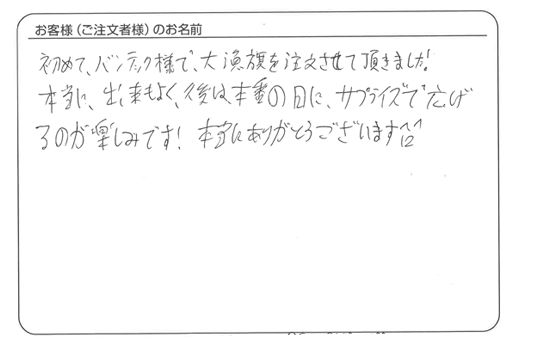 お客様（ご注文者様）のお名前
初めて、バンテック様で、大漁旗を注文させて頂きました!
本当に、出来もよく、後は、本番の日に、サプライズで広げ
るのが楽しみです! 本当にありがとうございます^▽^